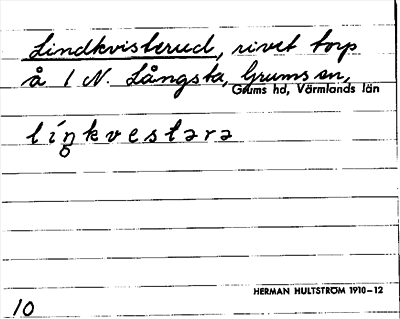 Lindkvisterud, rivet torp
å 1 N. Långsta, Grums sn,
Grums hd, Värmlands län
líŋkvestərə
HERMAN HULTSTRÖM 1910–12
10